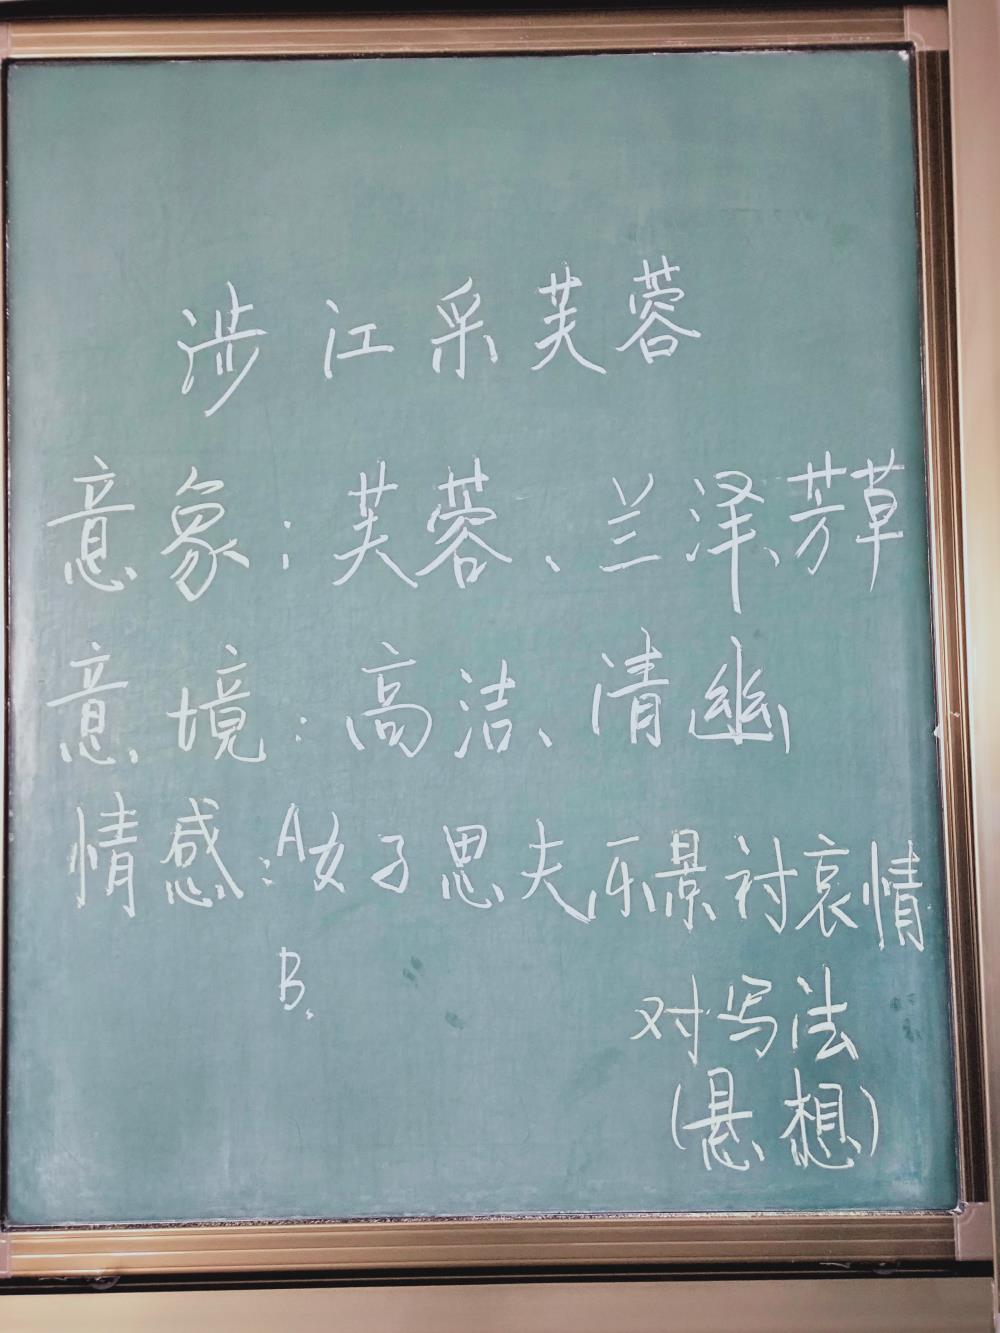 涉江采芙蓉
意象:芙蓉、兰泽、芳草
意境:高洁、清幽
情感:A女子思夫 乐景衬哀情
B. 对写法
(悬想)